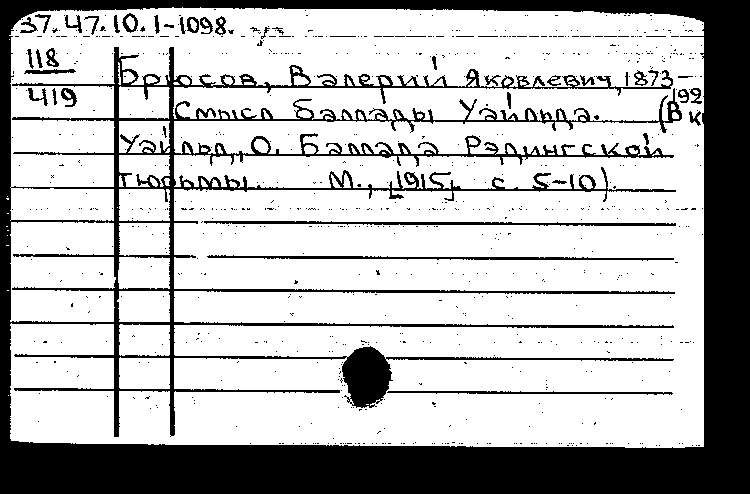 37.47.10.1-1098.
118
419
Брюсов, Валерий Яковлевич, 1873-
192
Смысл баллады Уайльда. (В кн
Уайльд, О. Баллада Рэдингской
тюрьмы. М., [1915]. с. 5-10)